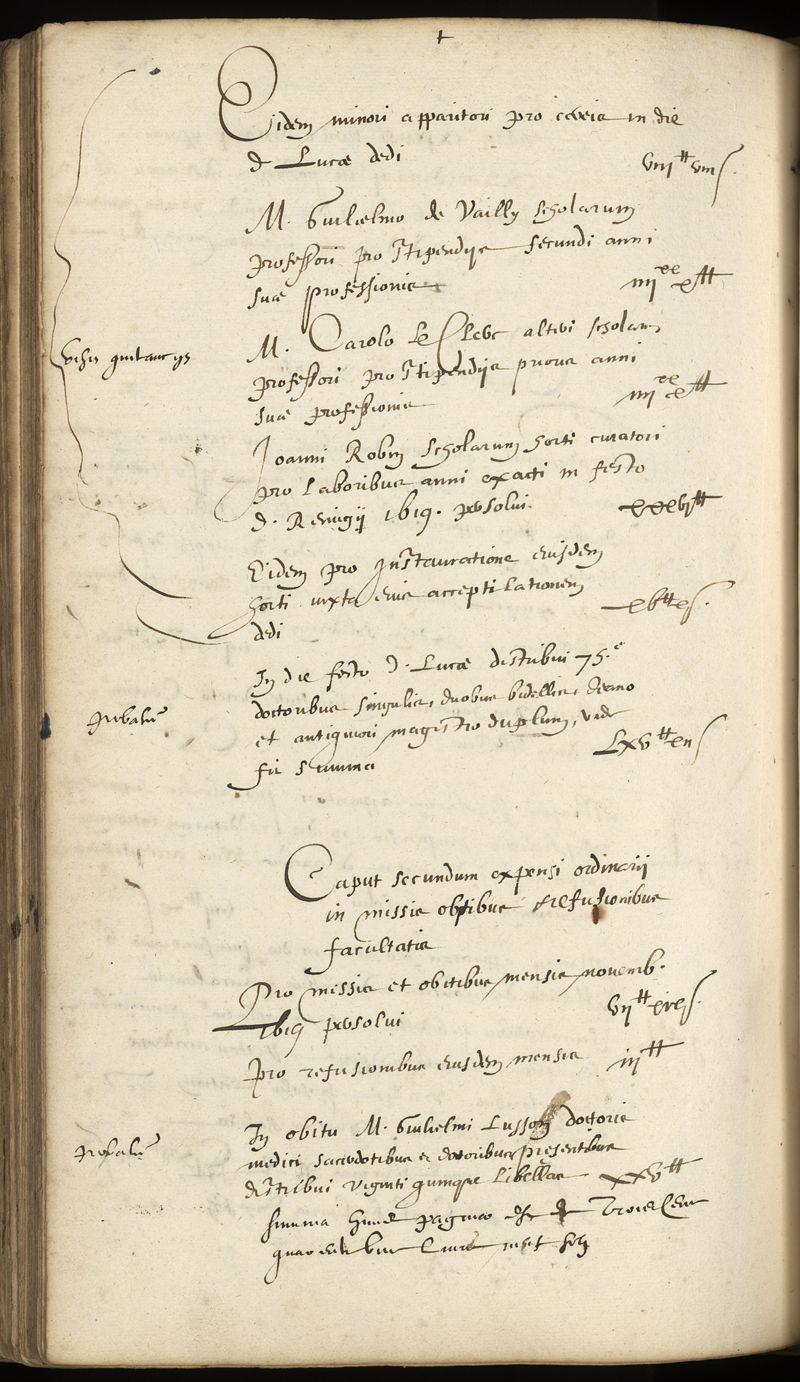 Eidem minori apparitori pro cereis in die
D. Lucæ dedi viij ₶ viij s.
M. Guilielmo de Vailly scholarum
professori pro stipendijs secundi anni
suæ professionis iiij xx x ₶
visis quitancijs
M. Carolo le Clerc alteri scholarum
professori pro stipendijs primi anni
suæ professionis iiij xx x ₶
Joanni Robin scholarum horti curatori
pro laboribus anni exacti in festo
D. Remigij 1619. persolui xxxvi ₶
Eidem pro Instauratione eiusdem
horti iuxta eius acceptilationem
dedi xv ₶ x s.
In die festo D. Lucæ distribui 75.
doctoribus singulis, duobus bidellis, decano
probatur
et antiquiori magistro duplum, unde
fit summa Lxv ₶
Caput secundum expensi ordinarij
in missis obitibus et refusionibus
facultatis
Pro missis et obitibus mensis novemb.
1619 persolui vij ₶
Pro refusionibus eiusdem mensis iij ₶
In obitu M. Guilielmi Lusson doctoris
probatur
medici sacerdotibus et doctoribus presentibus
distribui viginti quinque libellas xxv ₶
summa huius paginæ Trois Cens
livres sept solz